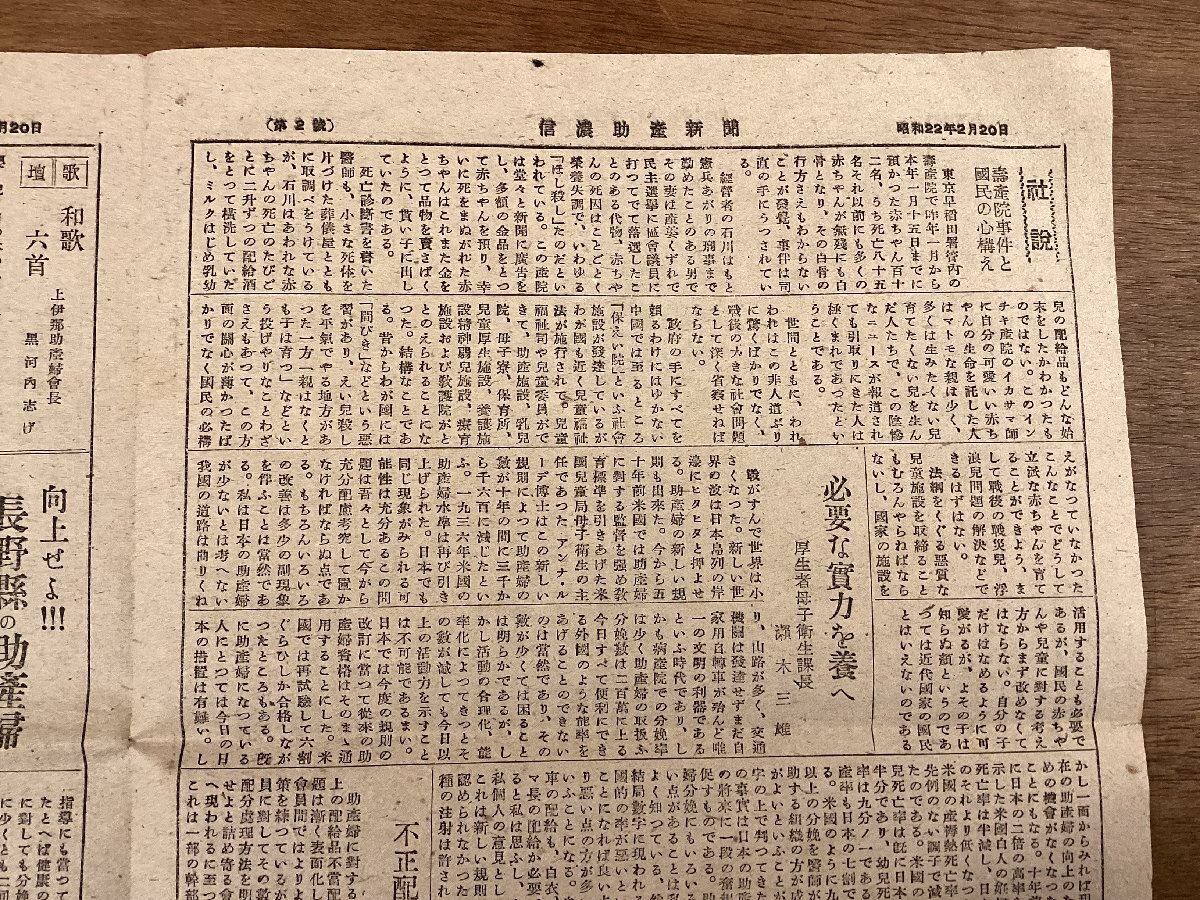 昭和22年2月20日
信濃助産新聞
（第２號）
社説
壽産院事件と
國民の心構え
東京早稻田署管内の
壽産院で昨年一月から
本年一月十五日までに
預かつた赤ちやん百十
二名、うち死亡八十五
名それ以前にも多くの
赤ちやんが無殘にも白
骨となり、その白骨の
行方さえもわからない
ことが發覺、事件は司
直の手にうつされてい
る。
經營者の石川はもと
憲兵あがりの刑事まで
勤めたことのある男で
その妻は産婆くずれで
民主選擧に區會議員に
打つてでて落選したこ
とのある代物、赤ちや
んの死因はことごとく
榮養失調で、いわゆる
「ほし殺し」たのだとい
われている。この産院
は堂々と新聞に廣告を
し、多額の金品をとつ
て赤ちやんを預り、幸
いに死をまぬがれた赤
ちやんはこれまた金を
とつて品物を賣さばく
ように、貰い子に出し
ていたのである。
死亡診斷書を書いた
醫師も、小さな死体を
片づけた葬儀屋ととも
に取調べをうけている
が、石川はあわれな赤
ちやんの死亡のたびご
とに二升ずつの配給酒
をとつて横流していた
し、ミルクはじめ乳幼
兒の配給品もどんな始
末をしたかわかつたも
のではない。このイン
チキ産院のイカサマ師
に自分の可愛いい赤ち
やんの生命を託した人
はマトモな親は少く、
多くは生みたくない兒
育てたくない兒を生ん
だ人たちで、この陰慘
なニユースが報道され
ても引取りにきた人は
極くまれであつたとい
うことである。
世間とともに、われ
われはこの非人道ぶり
に驚くばかりでなく、
戰後の大きな社會問題
として深く省察せねば
ならない。
政府の手にすべてを
頼るわけにはゆかない
中國では至るところ
「保えい院」といふ社會
施設が發達しているが
わが國も近く兒童福祉
法が施行されて、兒童
福祉司や兒童委員がで
きて、助産施設、乳兒
院、母子寮、保育所、
兒童厚生施設、養護施
設精神薄弱兒施設、療育
施設および敎護院がと
とのえられることにな
つた。結構なことであ
る。昔からわが國には
「間びき」などという惡
習があり、えい兒殺し
を平氣でやる地方があ
つた一方一親はなくと
も子は育つ」などとい
う投げやりなことわざ
さえもあつて、この方
面の關心が薄かつたば
かりでなく國民の心構
えがなつていなかつた
こんなことでどうして
立派な赤ちやんを育て
ることができよう、ま
して戰後の戰災兒、浮
浪兒問題の解決などで
きるはずはない。
法網をくぐる惡質な
兒童施設を取締ること
もむろんやらねばなら
ないし、國家の施設を
活用することも必要で
あるが、國民の赤ちや
んや兒童に對する考え
方からまず改めなくて
はならない。自分の子
だけはなめるように可
愛がるが、よその子は
知らぬ顔というのであ
つては近代國家の國民
とはいえないのである
必要な實力を養へ
厚生者母子衛生課長
瀬木三雄
戰がすんで世界は小
さくなつた。新しい世
界の波は日本島列の岸
邊にヒタヒタと押よせ
る。助産婦の新しい規
則も出來た。今から五
十年前米國では助産婦
に對する監督を強め敎
育標準を引きあげた米
國兒童局母子衛生の主
任であつた アンナ・ル
ーデ博士はこの新しい
規則によつて助産婦の
數が十年の間に三千か
ら千六百に減じたとい
ふ。一九三六年米國の
助産婦水準は再び引き
上げられた。日本でも
同じ現象がみられる可
能性は充分あるこの問
題は吾々として今から
充分配慮考究して置か
なければならぬ点であ
る。もちろんいくらか
の改善は多少の副現象
を伴ふことは當然であ
る。私は日本の助産婦
が少ないとは考へない
我國の道路は曲りくね
り、山路が多く、交通
機關は發達せずまだ自
家用自轉車が殆んど唯
一の文明の利器である
といふ時代であり、し
かも病産院での分娩率
は少く助産婦の取扱ふ
分娩數は二百萬に上る
今日すべて便利にでき
る外國のような能率を
あげることのできない
のは當然であり、その
數が少くては困ること
は明らかであるが、し
かし活動の合理化、能
率化によつてきつとそ
の數が減じても今日以
上の活動力を示すこと
は不可能であるまい。
日本では今度の規則の
改訂に當つて從來の助
産婦資格はそのまゝ通
用することにした。米
國では再試驗して六割
ぐらひしか合格しなか
つたところもある。旣
に助産婦になつている
人にとつては今日の日
本の措置は有難い。し
かし一面からみれば現
在の助産婦の向上のた
めの機會がなくなつた
ことにもなる。十年前
に日本の二倍の高率を
示した米國白人の姙産
死亡率は半減し、日本
のそれより低くなつた
米國の産褥熱死亡率は
先例のない調子で減つ
たのである。米國の乳
兒死亡率は旣に日本の
半分であり、幼兒死亡
率は九分ノ一である
産率も日本の七割で
る。米國のように九
以上の分娩を醫師が
助する組織の方が成
がよいといふことが
字の上で判つてきた
の事實は日本の助産
の將來に一段の奮起
促すものである。助
婦分娩にもいろい
い点があることは私
よく知つている。
結局數字に現われ
國的の率が惡いと
ことになれば良い
り惡い点の方が多
いふことになる。
車の配給も、白衣、
マ長の配給が必要
ると私は思ふし、
私個人の意見とし
これは新しい規則
認められなかつた
種の注射は許され
不正配
助産婦に對する
上の配給品不當配
題は漸く表面化し
會員間ではよりよ
策を練つているが
員に對してその數
配分處理方法を明
せよと詰め寄る會
へ現われるに至つ
これは一部の幹部
月20日
歌壇
和歌 六首
上伊那助産婦會長
黒河内志げ
向上せよ!!!
長野縣の助産婦
指導にも當つて
たとへば健康の
に對しても分娩
に少くとも二回